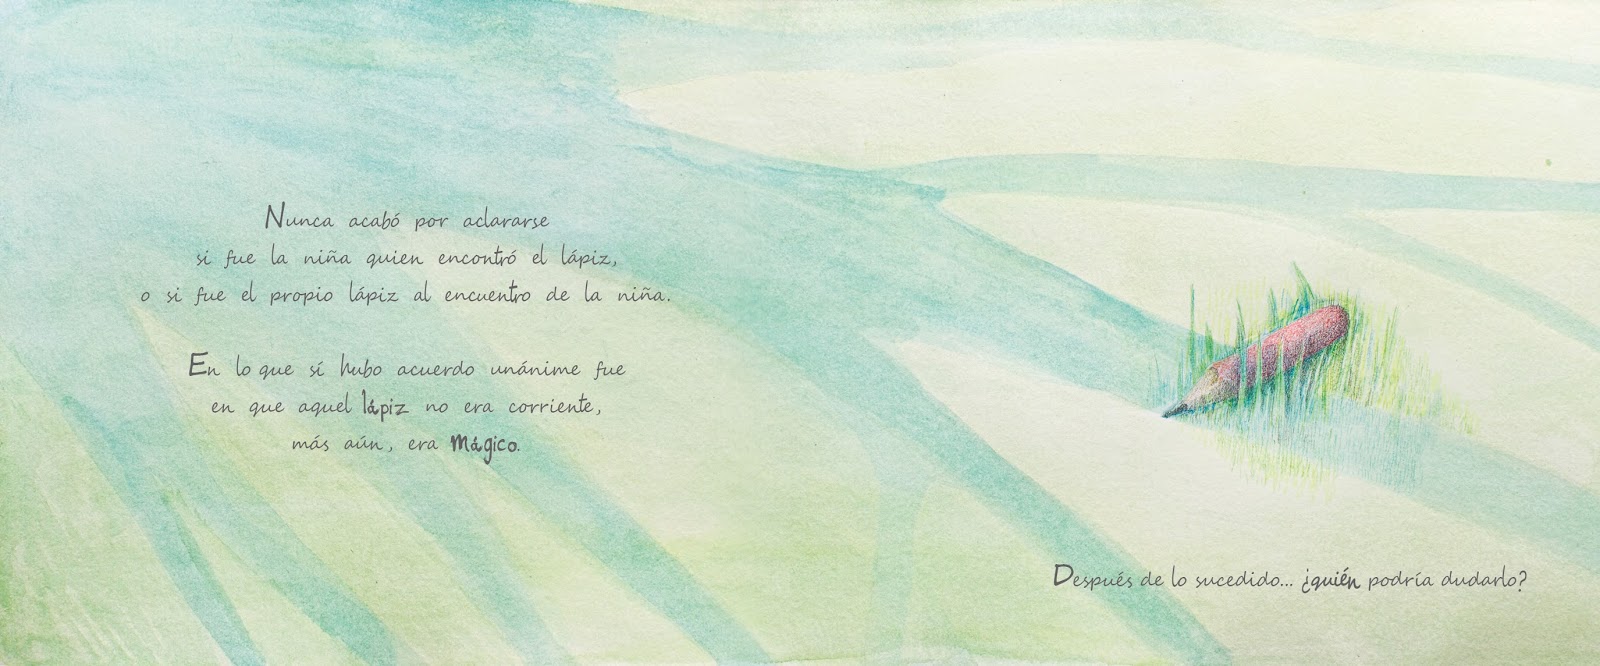 Nunca acabó por aclararse
si fue la niña quien encontró el lápiz,
o si fue el propio lápiz al encuentro de la niña.
En lo que sí hubo acuerdo unánime fue
en que aquel lápiz no era corriente,
más aún, era Mágico.
Después de lo sucedido... ¿quién podría dudarlo?